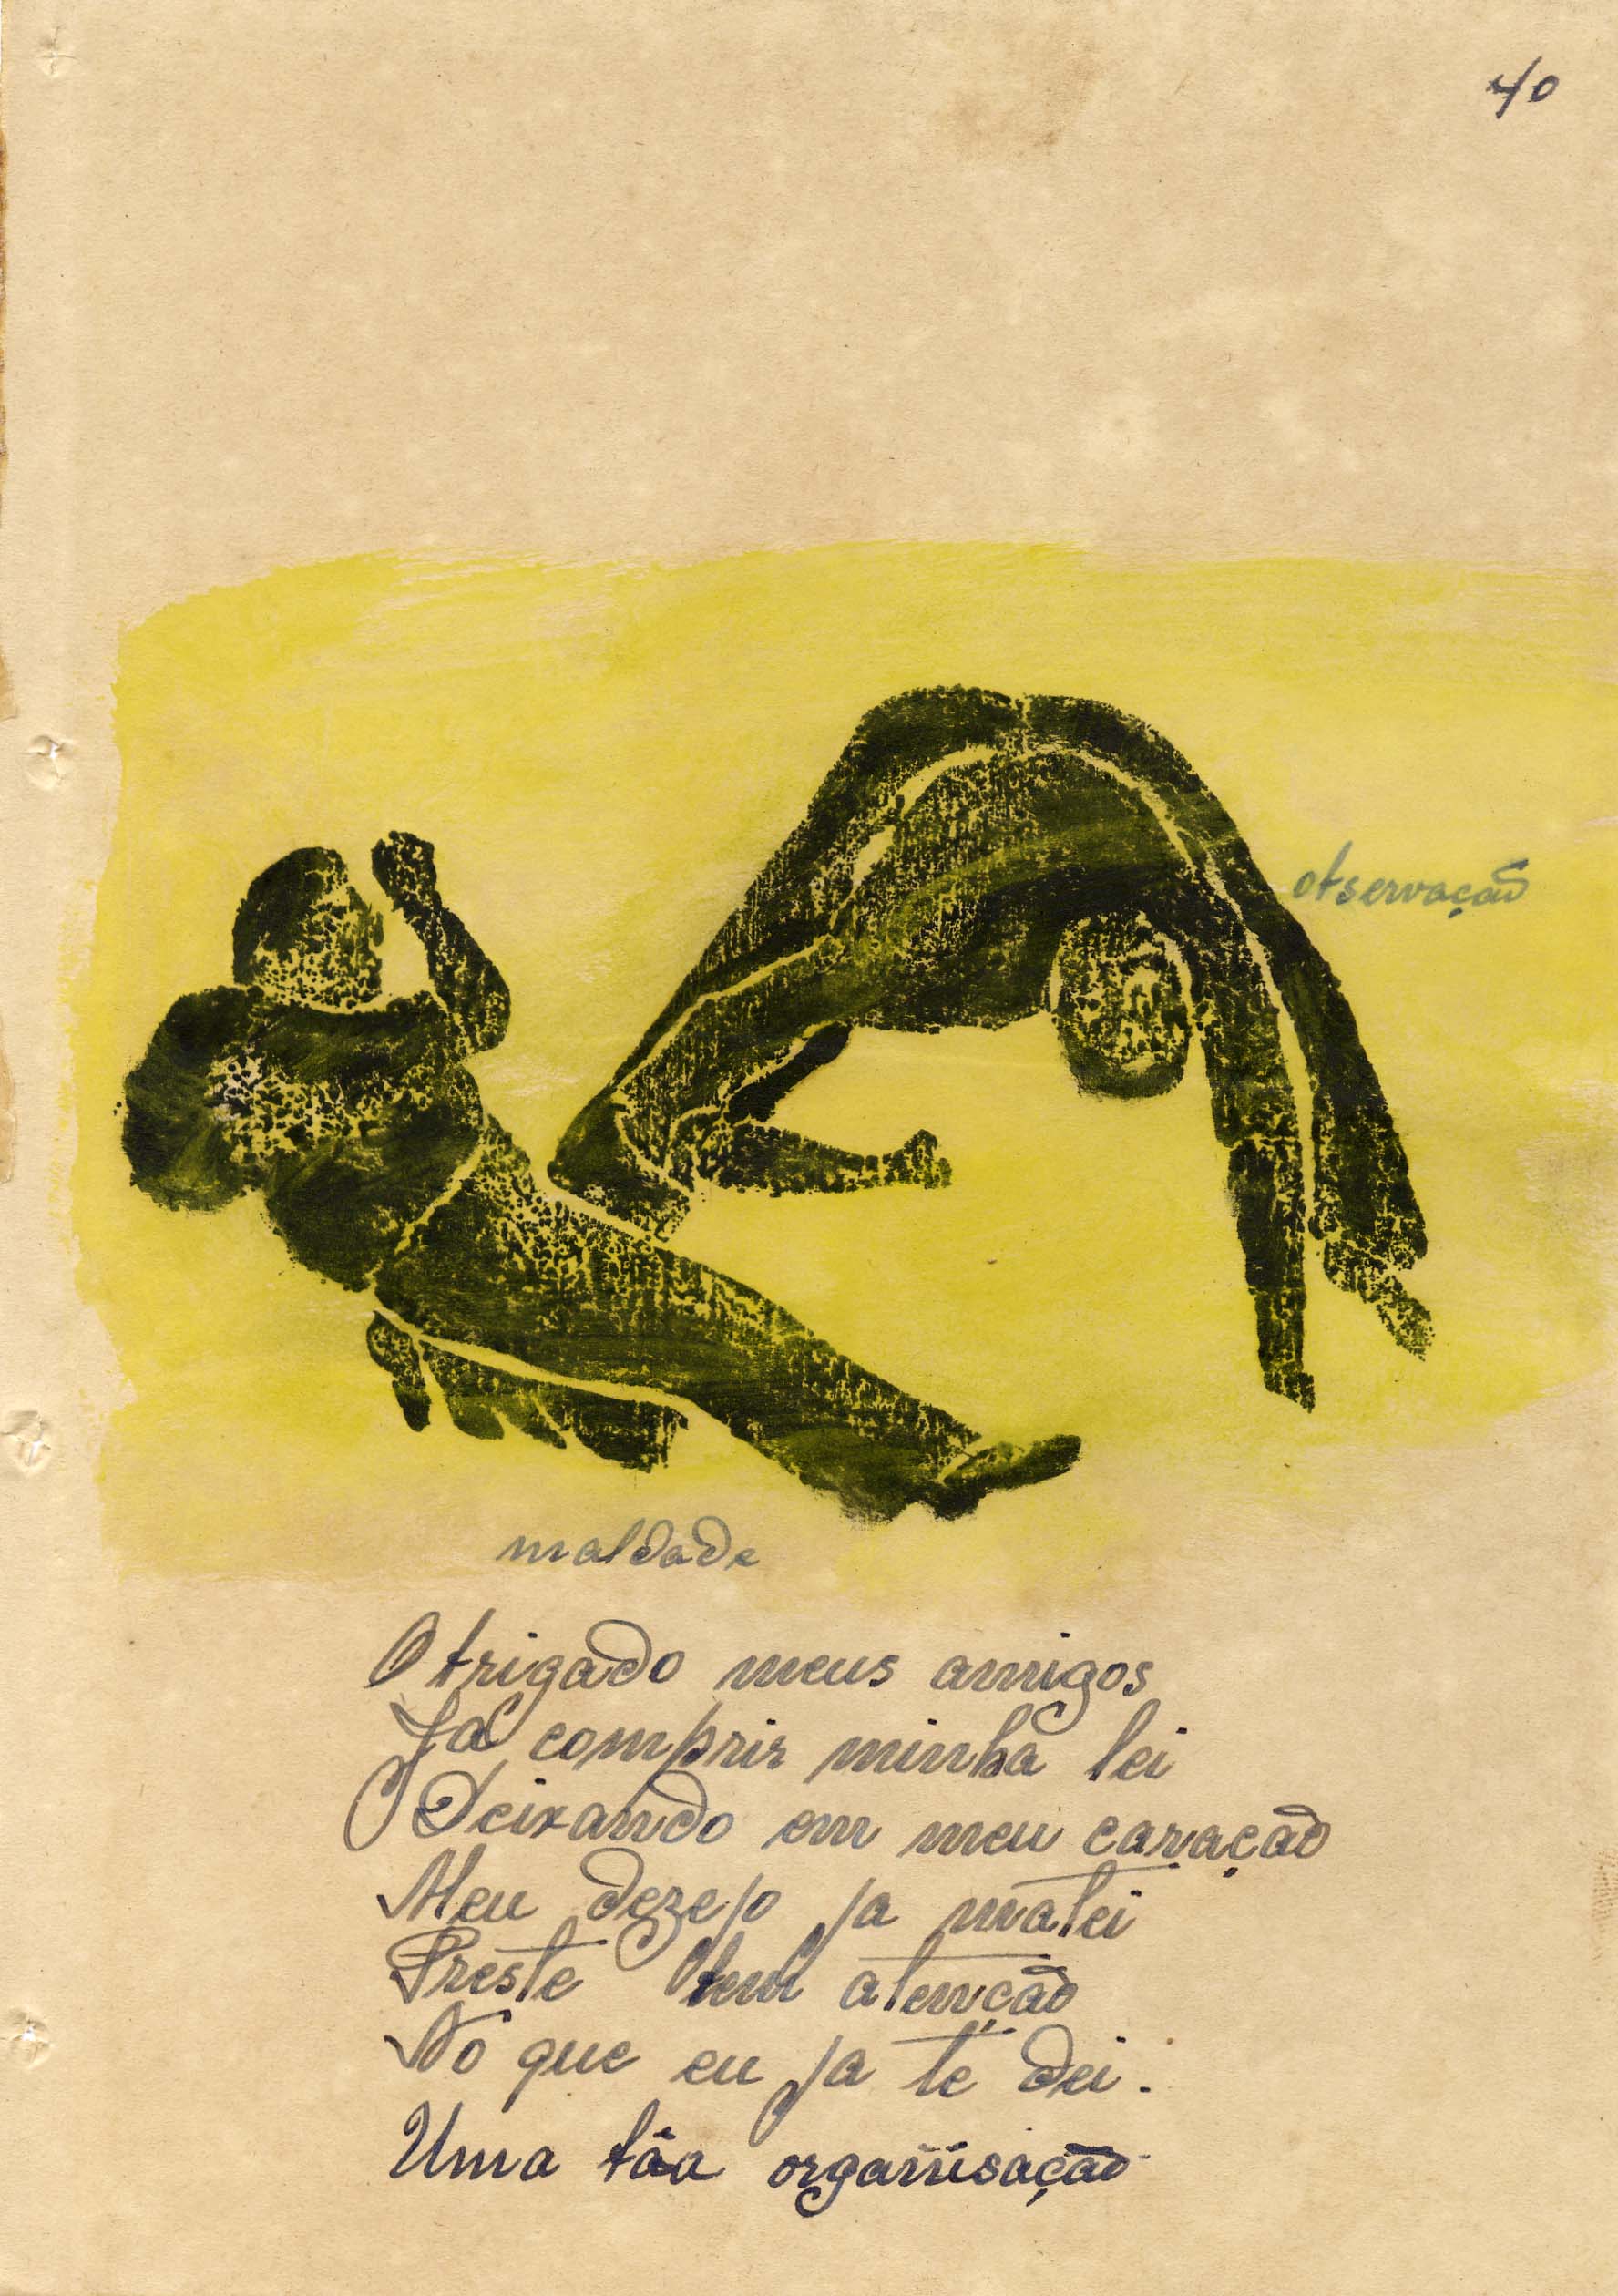 40
observação
maldade
Obrigado meus amigos
Já comprir minha lei
Deixando em meu caração
Meu dezejo ja matei
Preste bem atenção
No que eu ja te dei.
Uma bôa organisação